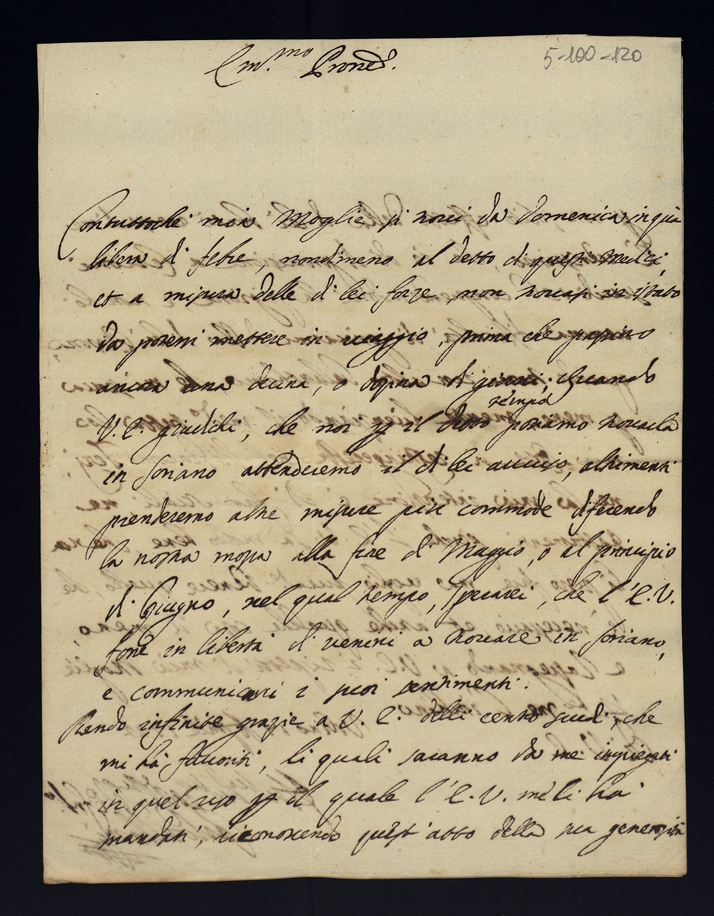 5-100-120
Em.mo Prone
Contuttochè mia Moglie si trovi da Domenica in qua
libera di febre, nondimeno al detto di questi Medici,
et a misura delle di lei forze non trovasi in istato
da potersi mettere in viaggio, prima che passino
ancora una decina, o dozina di giorni; Quando
V. E. giudichi, che noi per il detto tempo possiamo trovarla
in Soriano attenderemo il di lei avviso, altrimenti
prenderemo altre misure più commode differendo
la nostra mossa alla fine di Maggio, o al principio
di Giugno, nel qual tempo, sperarei, che l'E. V.
fosse in libertà di venirci a trovare in Soriano,
e communicarci i suoi sentimenti.
Rendo infinite grazie a V. E. delli cento scudi, che
mi ha favoriti, li quali saranno da me impiegati
in quel uso per il quale l'E. V. me li hà
mandati, riconoscendo quest'atto della sua generosità